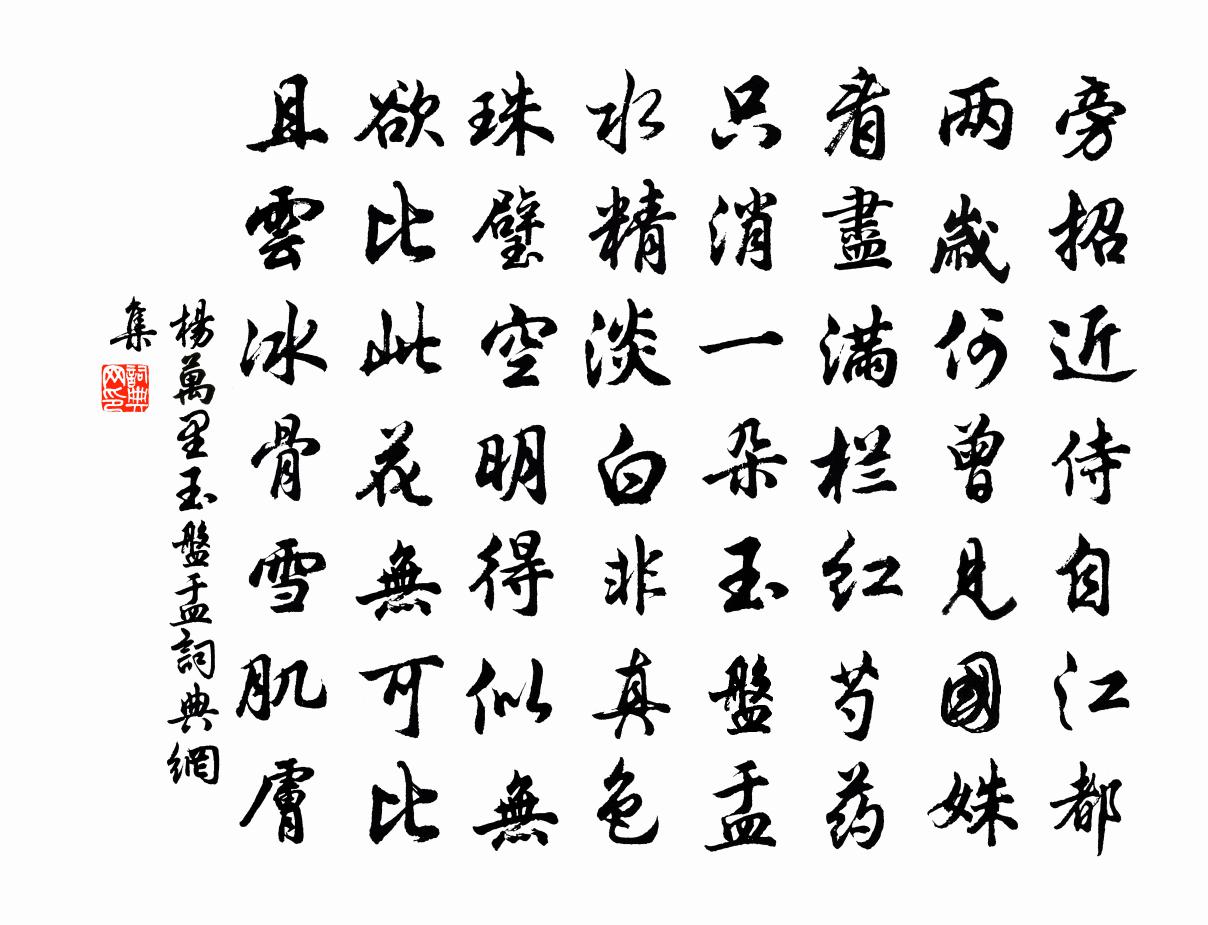 旁招近侍自江都
两歲何曾見國姝
看盡滿栏红芍药
只消一朵玉盤盂
水精淡白非真色
珠璧空明得似無
欲比此花無可比
且雲冰骨雪肌膚
楊萬里玉盤盂詞典網
集
詞典
网印